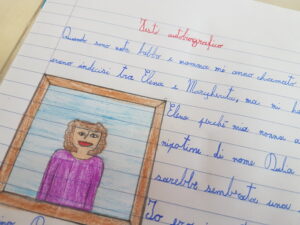 Testo autobiografico
Quando sono nata babbo e mamma mi anno chiamato
erano indecisi tra Elena e Margherita, ma mi
Elena perché mia nonna a
nipotina di nome Dalia
sarebbe sembrata una
Io ero